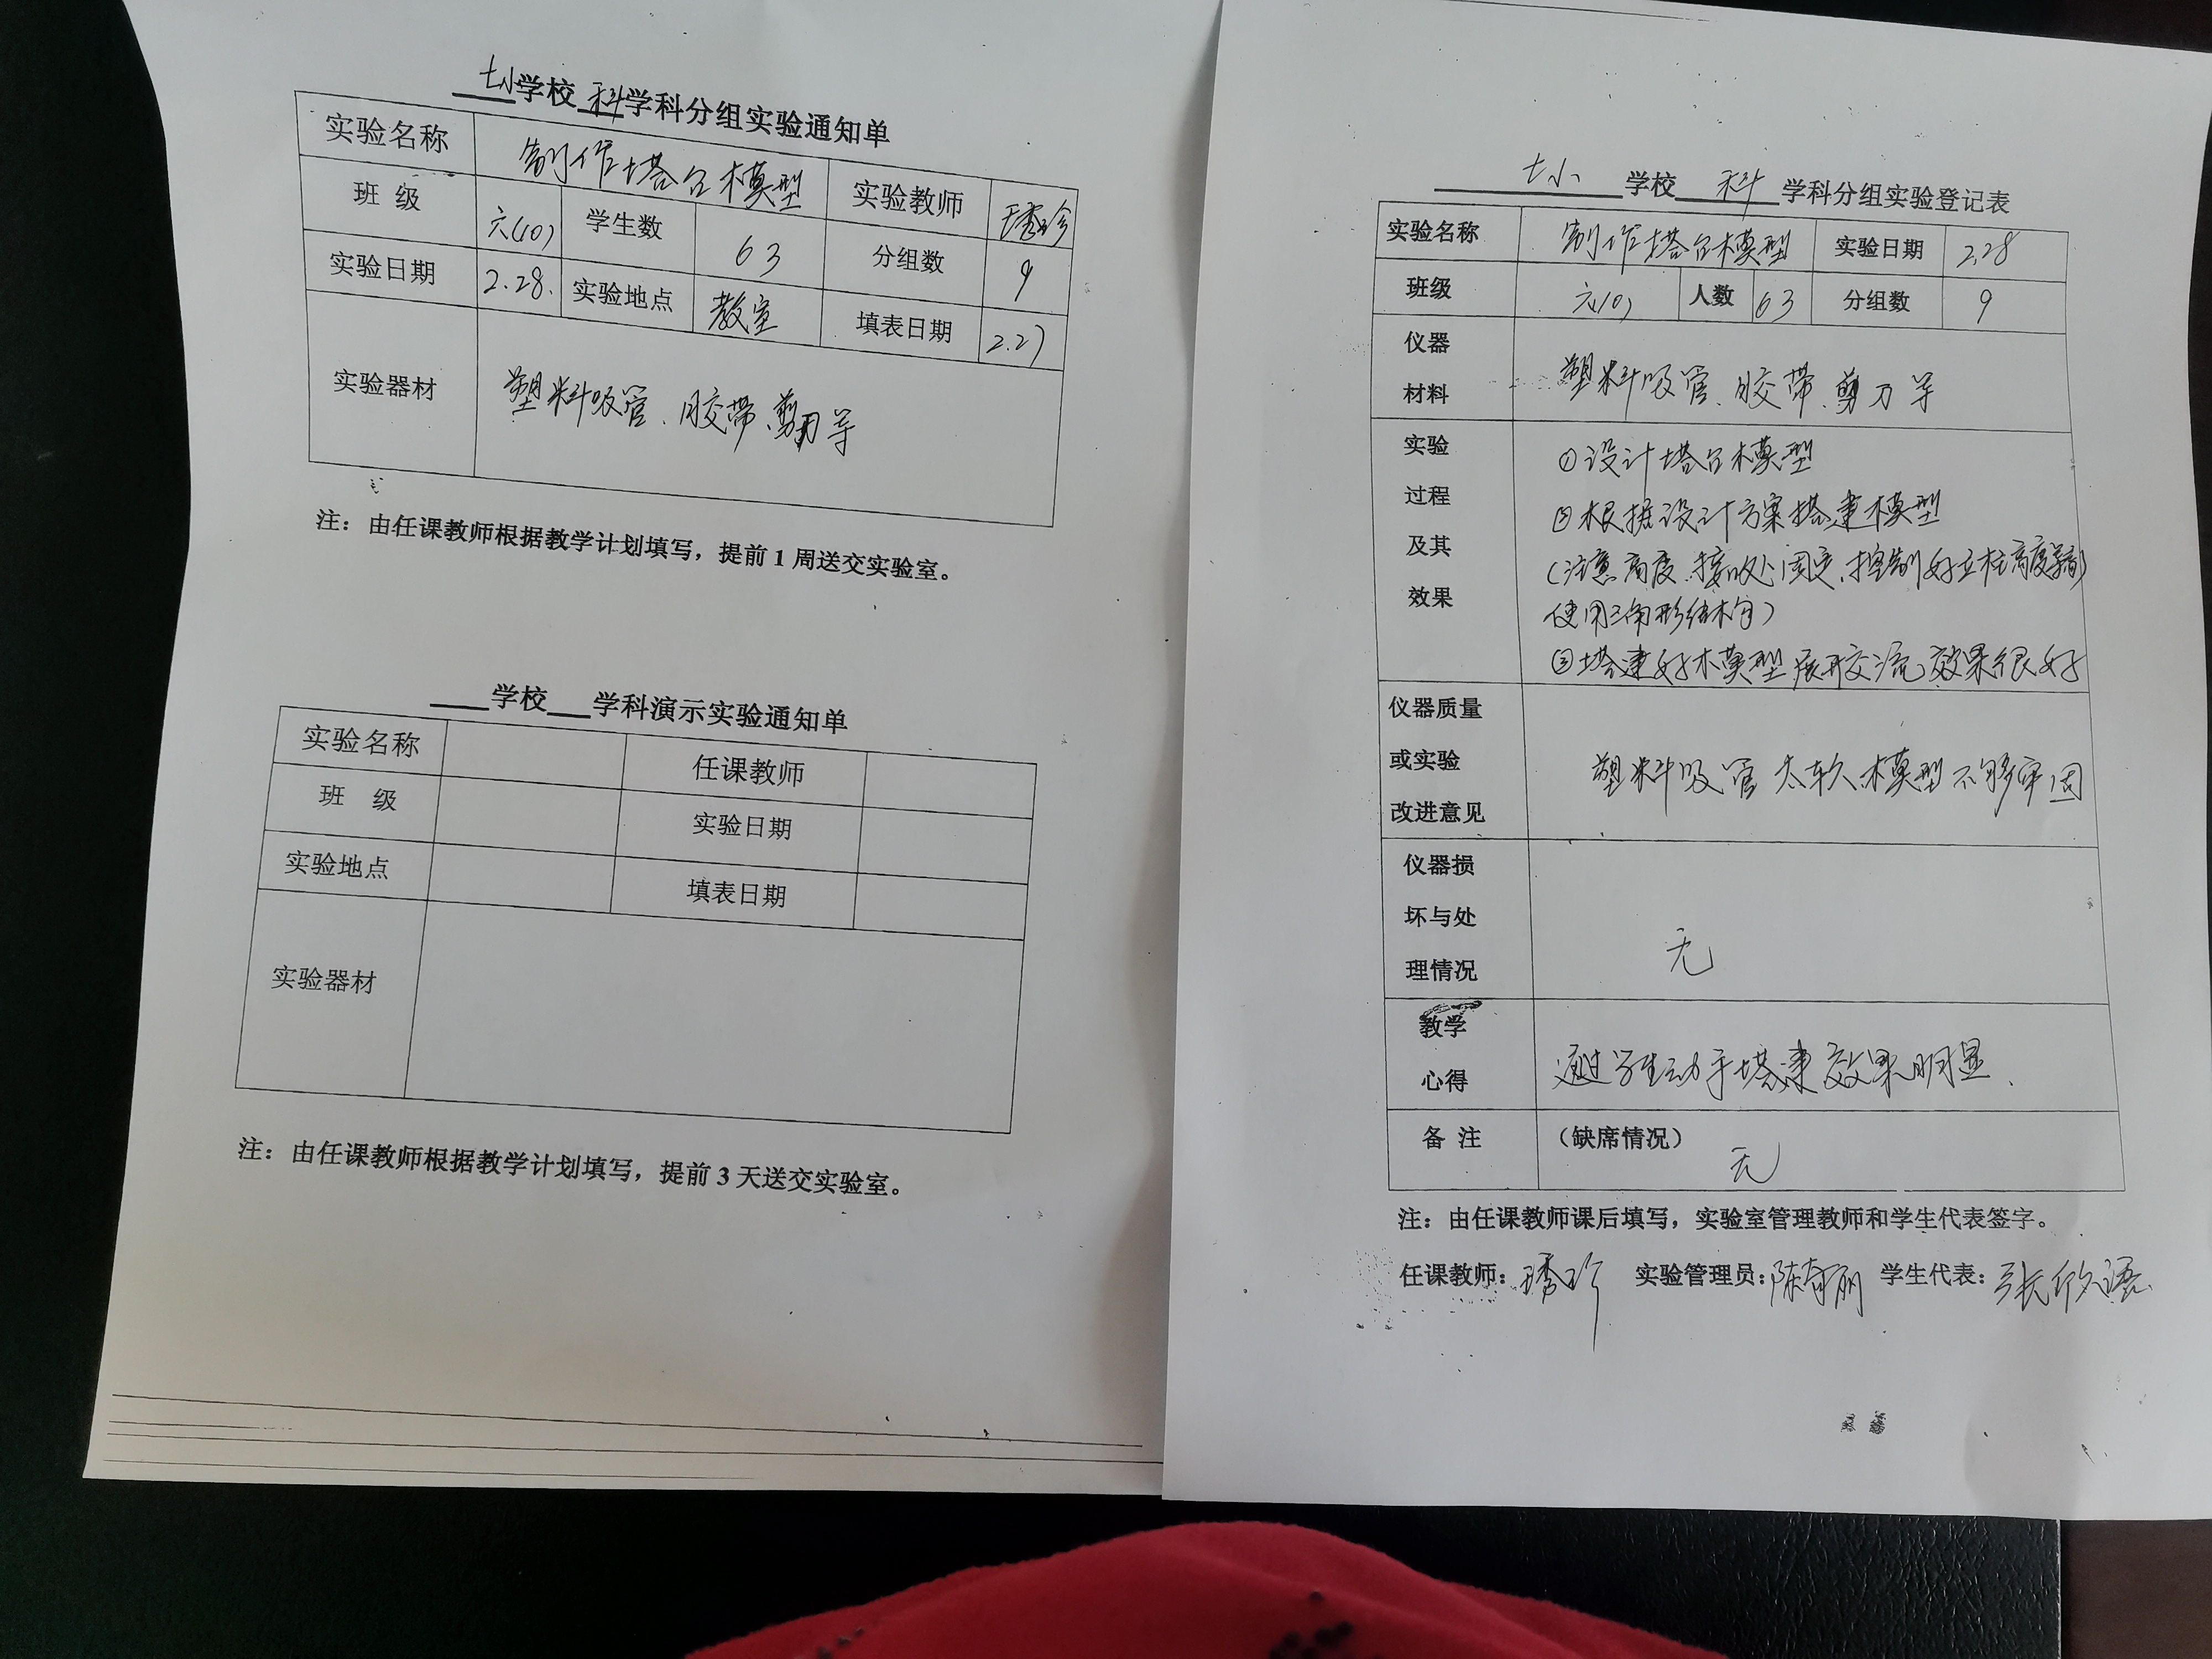 七小学校 科 学科分组实验通知单
实验名称 制作塔台模型 实验教师 秀珍
班 级 六(10) 学生数 63 分组数 9
实验日期 2.28. 实验地点 教室 填表日期 2.27
实验器材 塑料吸管、胶带、剪刀等
注：由任课教师根据教学计划填写，提前1周送交实验室。
学校 学科演示实验通知单
实验名称 任课教师
班 级 实验日期
实验地点 填表日期
实验器材
注：由任课教师根据教学计划填写，提前3天送交实验室。
七小 学校 科 学科分组实验登记表
实验名称 制作塔台模型 实验日期 2.28
班级 六(10) 人数 63 分组数 9
仪器
材料
塑料吸管、胶带、剪刀等
实验
过程
及其
效果
①设计塔台模型
②根据设计方案搭建模型
(注意高度、接收处固定、控制好立柱高度
使用三角形结构)
③搭建好模型展开交流,效果很好
仪器质量
或实验
改进意见
塑料吸管太软,模型不够牢固
仪器损
坏与处
理情况
无
教学
心得
通过学生动手搭建效果明显.
备 注 （缺席情况）
无
注：由任课教师课后填写，实验室管理教师和学生代表签字。
任课教师： 秀珍 实验管理员： 陈 丽 学生代表： 张欣语